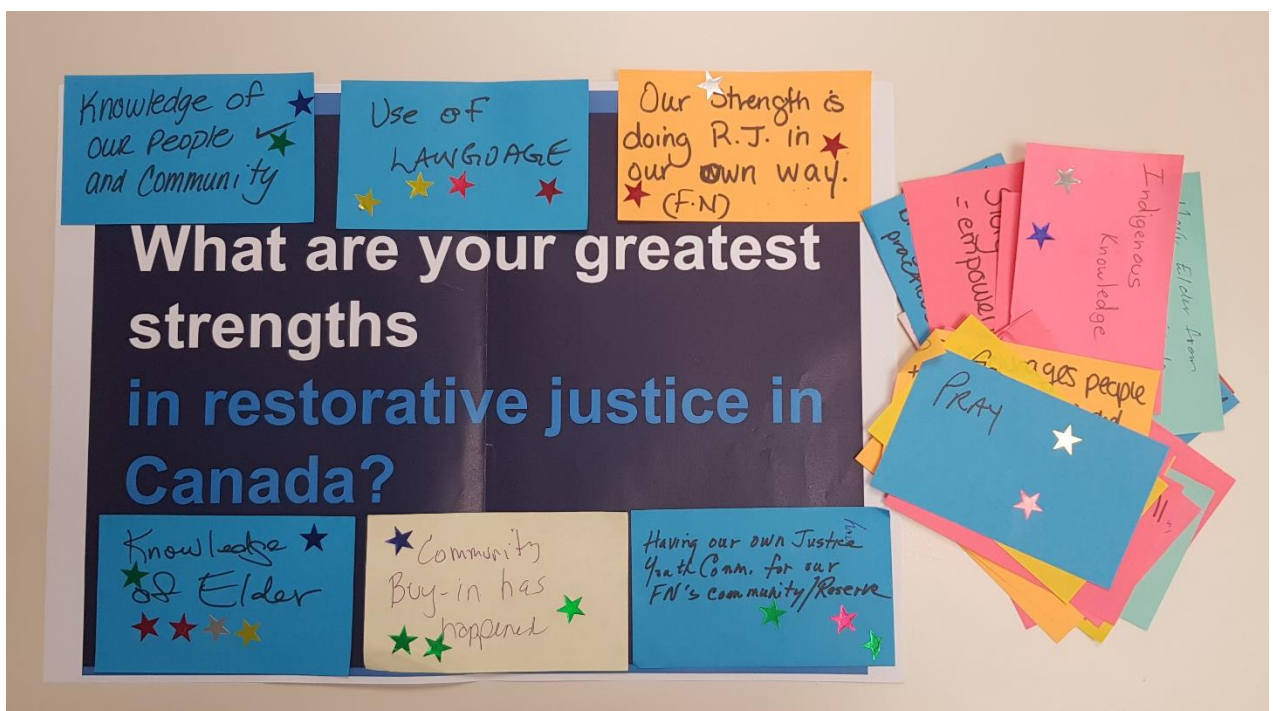 Knowledge of
our People
and Community
Use of
LANGUAGE
Our Strength is
doing R.J. in
our own way.
(F.N)
What are your greatest
strengths
in restorative justice in
Canada?
Knowledge
of Elder
Community
Buy-in has
happened
Having our own Justice
Youth Comm. for our
FN's community/Reserve
Indigenous
Knowledge
Elder from
= empower
people
PRAY